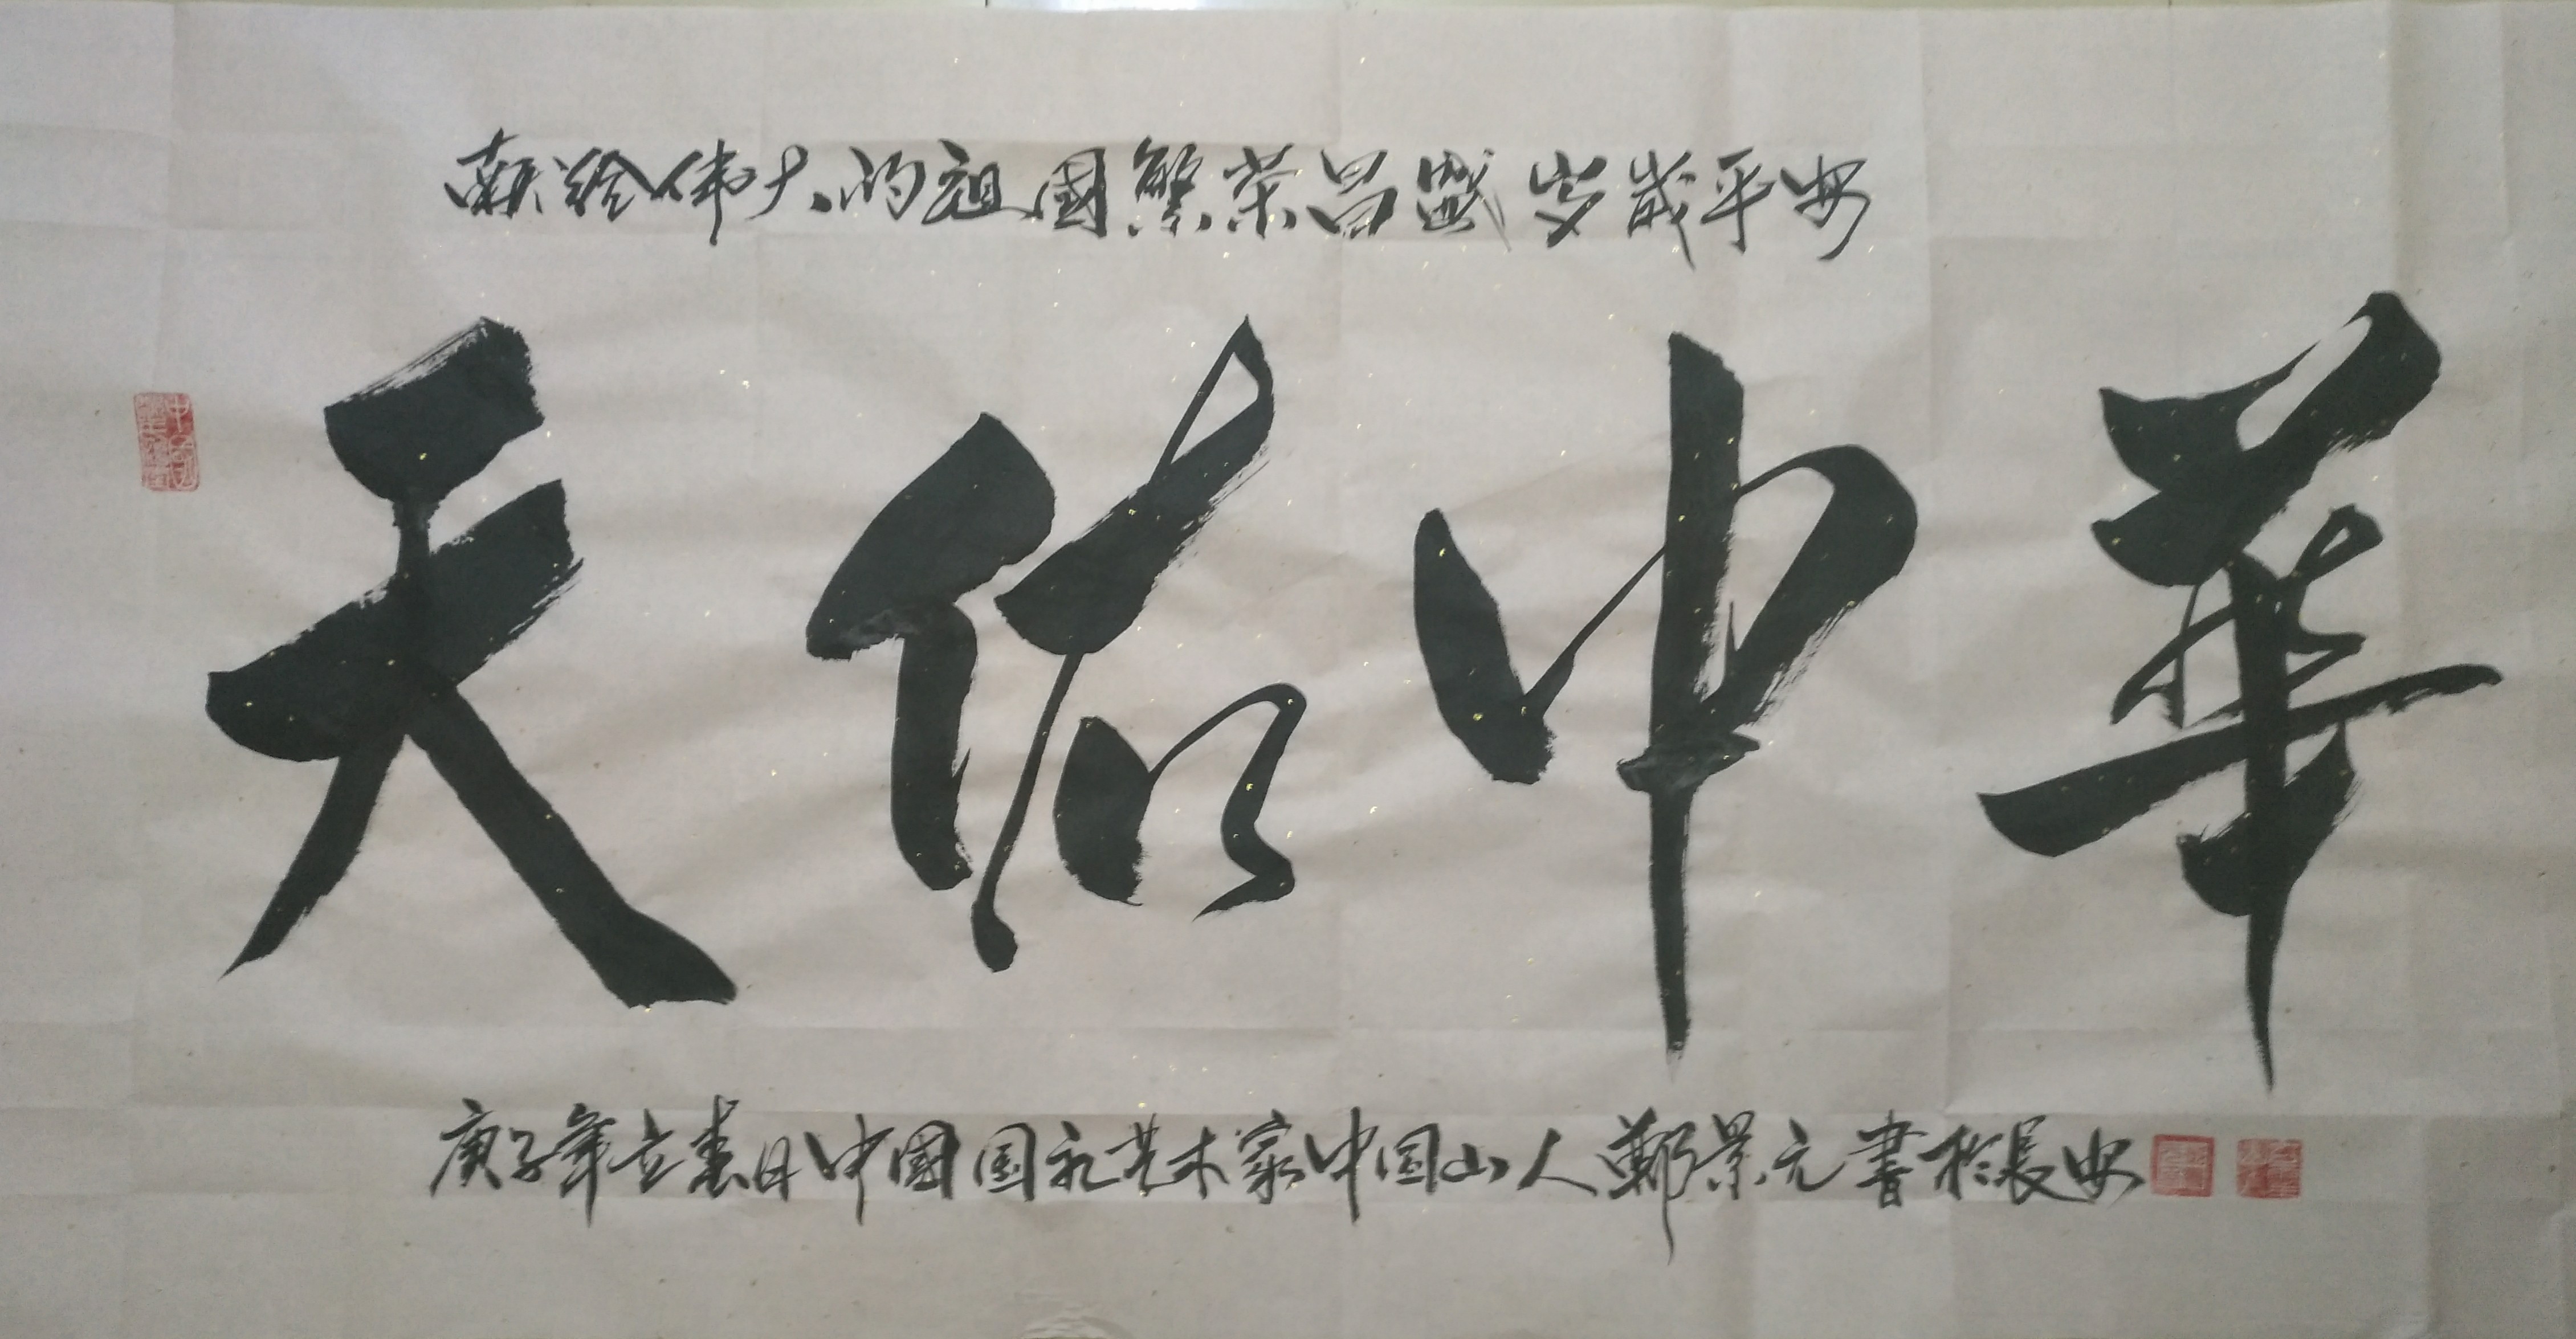 献给伟大的祖國繁荣昌盛岁歲平安
天佑中華
庚子年立春日中國国礼艺术家中国山人鄭景元書於長安